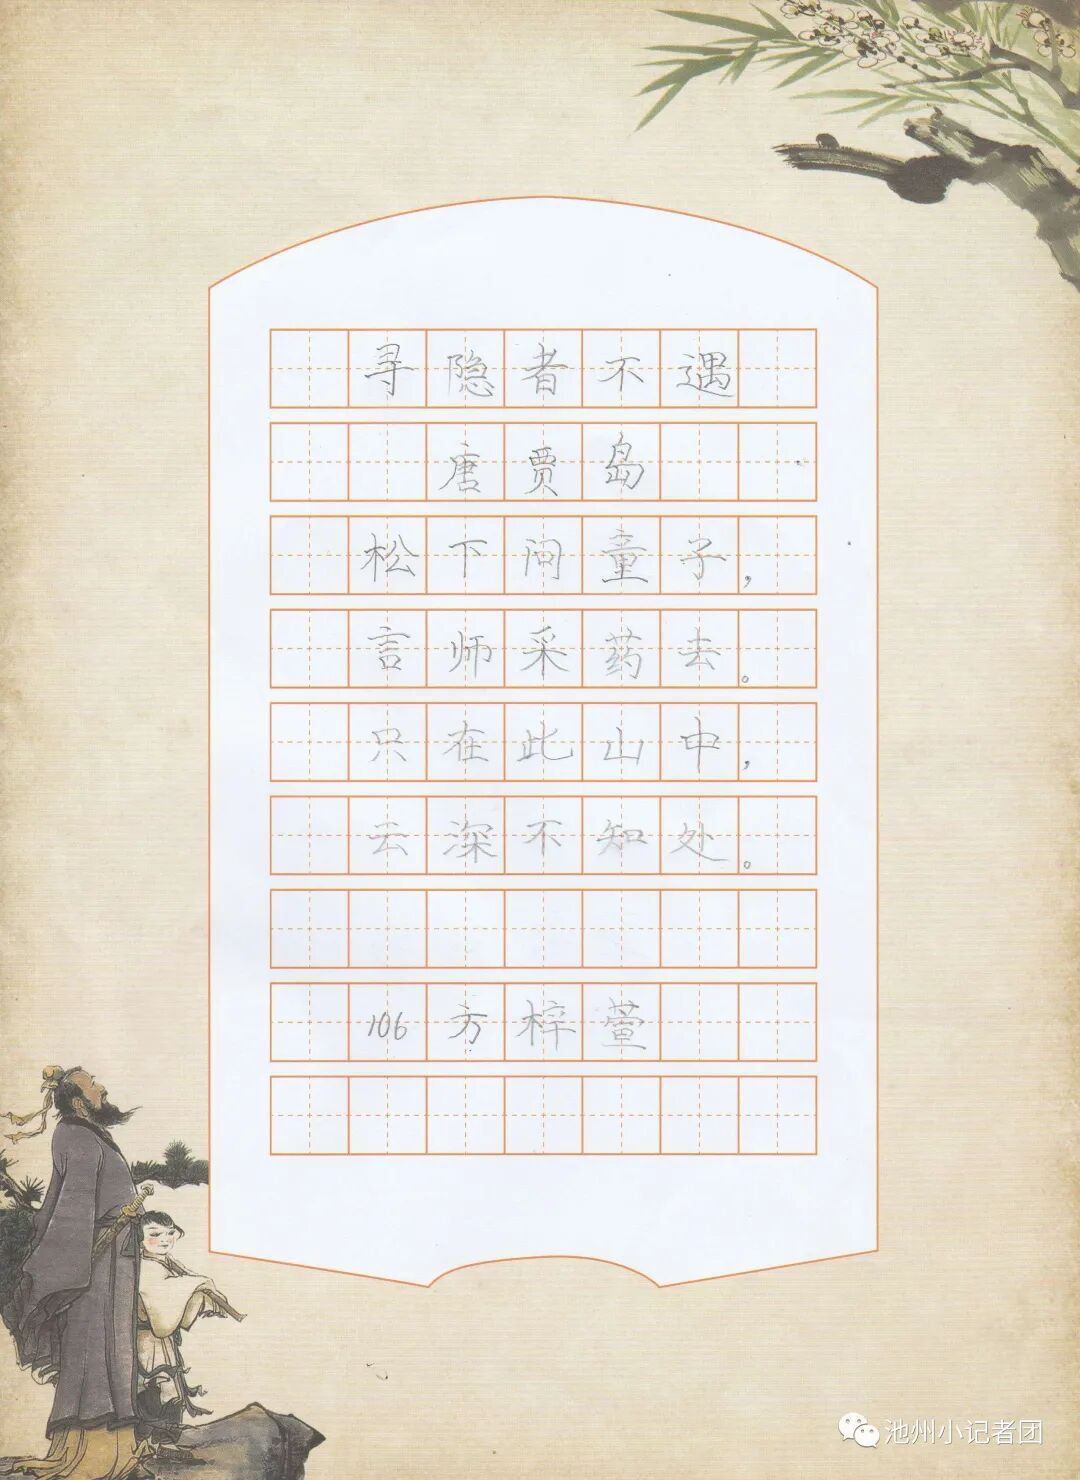 寻隐者不遇
唐贾岛
松下问童子，
言师采药去。
只在此山中，
云深不知处。
106方梓萱
池州小记者团